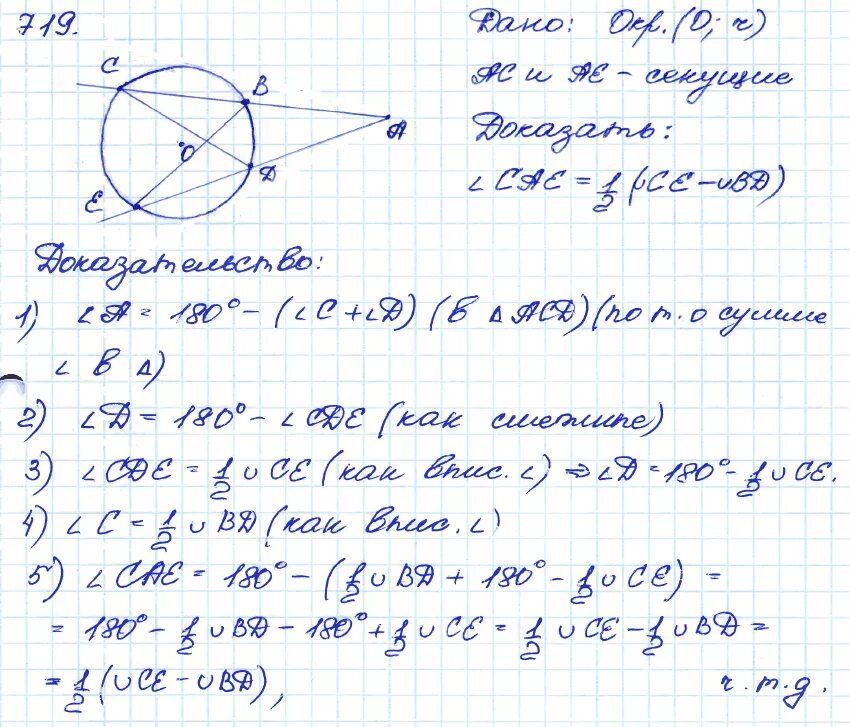 719.
C
B
A
O
D
E
Дано: Окр. (O; r)
AC и AE - секущие
Доказать:
∠CAE = 1/2 (∪CE - ∪BD)
Доказательство:
1) ∠A = 180° - (∠C + ∠D) (в △ACD) (по т. о сумме
∠ в △)
2) ∠D = 180° - ∠CDE (как смежные)
3) ∠CDE = 1/2 ∪ CE (как впис. ∠) ⇒ ∠D = 180° - 1/2 ∪ CE.
4) ∠C = 1/2 ∪ BD (как впис. ∠)
5) ∠CAE = 180° - (1/2 ∪ BD + 180° - 1/2 ∪ CE) =
= 180° - 1/2 ∪ BD - 180° + 1/2 ∪ CE = 1/2 ∪ CE - 1/2 ∪ BD =
= 1/2 (∪CE - ∪BD), ч.т.д.